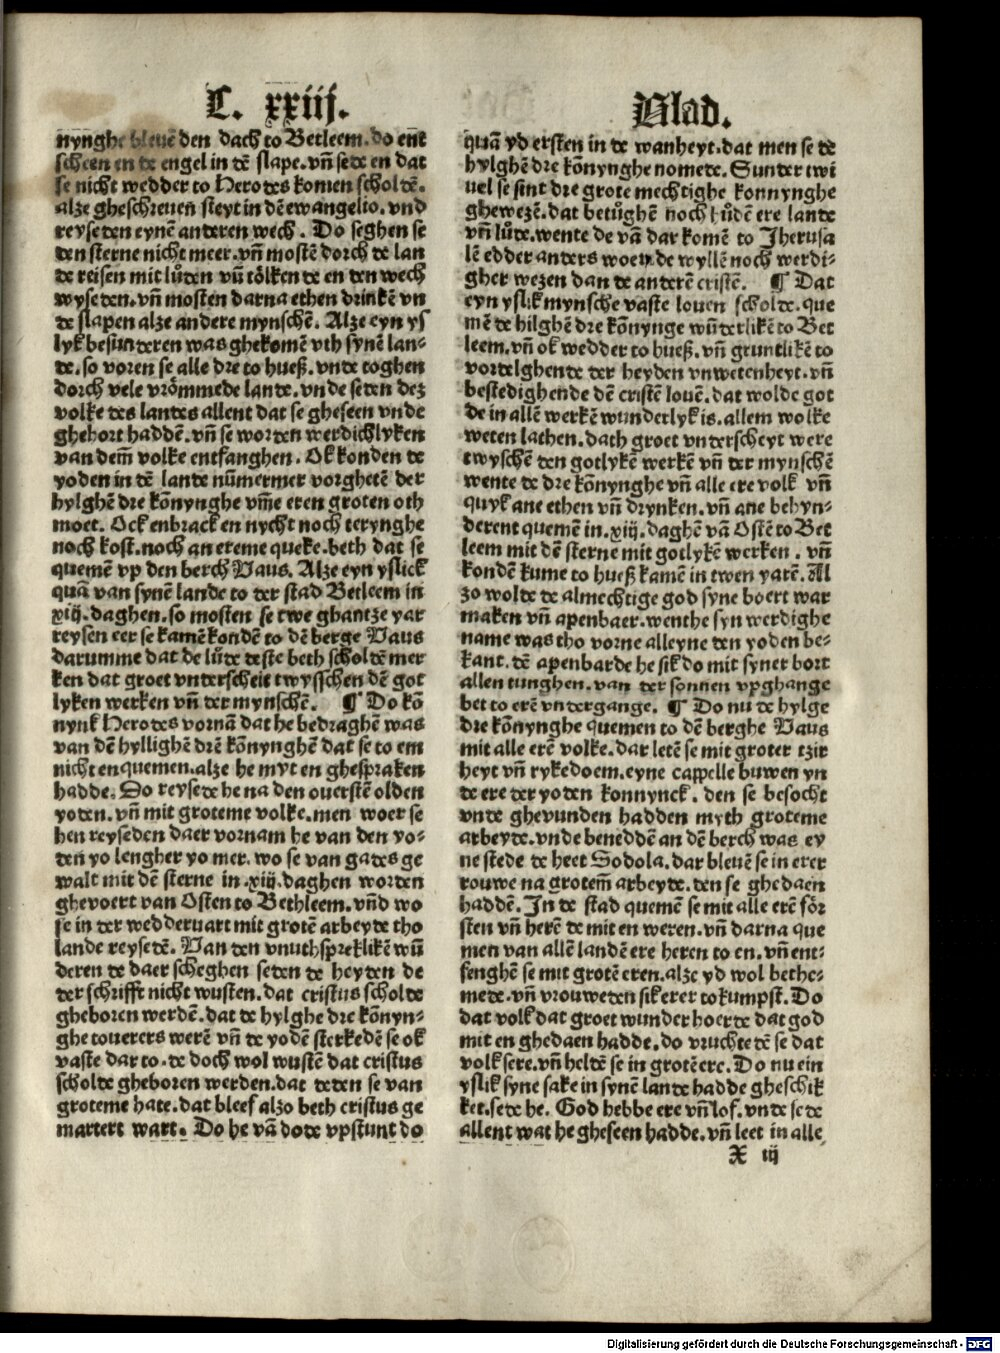 C. xxiij.
Blad.
nynghe bleuē den dach to Betleem. do ent
scheen en de engel in dē slape. vn̄ sede en dat
se nicht wedder to Herodes komen scholdē.
alze gheschreuen steyt in dē ewangelio. vnd
reyseden eynē anderen wech. Do seghen se
den sterne nicht meer. vn̄ mostē dorch de lan
de reisen mit lůden vn̄ tölken de en den wech
wyseden. vn̄ mosten darna ethen drinkē vn
de slapen alze andere mynschē. Alze eyn ys
lyk besunderen was ghekomē vth synē lan-
de. so voren se alle dre to hueß. vnde toghen
dorch vele vrömmede lande. vnde seden dez
volke des landes allent dat se gheseen vnde
ghehort haddē. vn̄ se worden werdichlyken
van dem̄ volke entfanghen. Ok konden de
yoden in dē lande nūmermer vorghetē der
hylghē dre kōnynghe vm̄e eren groten oth
moet. Ock enbrack en nycht noch terynghe
noch kost. noch an ereme queke. beth dat se
quemē vp den berch Vaus. Alze eyn yslick
quā van synē lande to der stad Betleem in
xiij. daghen. so mosten se twe ghantze yar
reysen eer se kamē kondē to dē berge Vaus
darumme dat de lůde deste beth scholdē mer
ken dat groet vnterscheit twysschen dē got
lyken werken vn̄ der mynschē. ¶ Do kō
nynk Herodes vornā dat he bedraghē was
van dē hyllighē drē kōnynghē dat se to em
nicht enquemen. alze he myt en ghespraken
hadde. So reysede he na den ouerstē olden
yoden. vn̄ mit groteme volke. men woer se
hen reyseden daer vornam he van den yo-
den yo lengher yo mer. wo se van gades ge
walt mit dē sterne in .xiij. daghen worden
ghevoert van Osten to Bethleem. vnd wo
se in der wedderuart mit grotē arbeyde tho
lande reysedē. Van den vnuthspreklikē wū
deren de daer scheghen seden de heyden de
der schrifft nicht wusten. dat cristus scholde
gheboren werdē. dat de hylghe dre kōnyn-
ghe touerers werē vn̄ de yodē sterkedē se ok
vaste dar to. de doch wol wustē dat cristus
scholde gheboren werden. dat deden se van
groteme hate. dat bleef alzo beth cristus ge
martert wart. Do he vā dode vpstunt do
quā yd ersten in de wanheyt. dat men se de
hylghē dre kōnynghe nomede. Sunder twi
uel se sint dre grote mechtighe konnynghe
ghewezē. dat betůghē noch hůdē ere lande
vn̄ lůde. wente de vā dar komē to Jherusa
lē edder anders woer. de wyllē noch werdi-
gher wezen dan de anderē cristē. ¶ Dat
eyn yslik mynsche vaste louen scholde. que
mē de hilghē dre kōnynge wn̄derlikē to Bet
leem. vn̄ ok wedder to hueß. vn̄ gruntlikē to
vordelghende der heyden vnwetenheyt. vn̄
bestedighende dē cristē louē. dat wolde got
de in allē werkē wunderlyk is. allem wolke
weten lathen. dath groet vnterscheyt were
twyschē den gotlykē werkē vn̄ der mynschē
wente de dre kōnynghe vn̄ alle ere volk vn̄
quyk ane ethen vn̄ drynken. vn̄ ane behyn-
derent quemē in. xiij. daghē vā Ostē to Bet
leem mit dē sterne mit gotlykē werken. vn̄
kondē kume to hueß kamē in twen yarē. Al
zo wolde de almechtige god syne boert war
maken vn̄ apenbaer. wenthe syn werdighe
name was tho vorne alleyne den yoden be-
kant. dē apenbarde he sik do mit syner bort
allen tunghen. van der sonnen vpghange
bet to erē vndergange. ¶ Do nu de hylge
dre kōnynghe quemen to dē berghe Vaus
mit alle erē volke. dar letē se mit groter tzir
heyt vn̄ rykedoem. eyne cappelle buwen yn
de ere der yoden konnynck. den se besocht
vnde ghevunden hadden myth groteme
arbeyde. vnde beneddē an dē berch was ey
ne stede de heet Sodola. dar bleuē se in erer
rouwe na grotem̄ arbeyde. den se ghedaen
haddē. In de stad quemē se mit alle erē för
sten vn̄ herē de mit en weren. vn̄ darna que
men van allē landē ere heren to en. vn̄ ent-
fenghē se mit grotē eren. alze yd wol bethe-
mede. vn̄ vrouweden sik erer tokumpst. Do
dat volk dat groet wunder hoerde dat god
mit en ghedaen hadde. do vruchtedē se dat
volk sere. vn̄ heldē se in grotē ere. Do nu ein
yslik syne sake in synē lande hadde gheschik
ket. sede he. God hebbe ere vn̄ lof. vnde sede
allent wat he gheseen hadde. vn̄ leet in alle
X iij
Digitalisierung gefördert durch die Deutsche Forschungsgemeinschaft - DFG